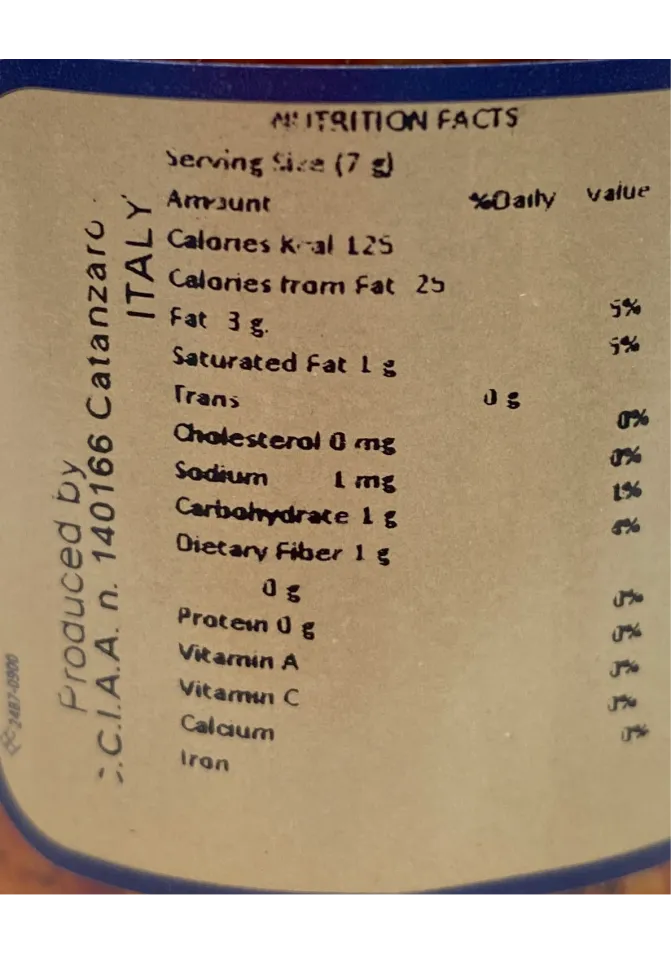 NUTRITION FACTS
Serving Size (7 g)
Amount %Daily value
Calories Kcal 125
Calories from Fat 25
Fat 3 g. 5%
Saturated Fat 1 g 5%
Trans 0 g
Cholesterol 0 mg 0%
Sodium 1 mg 0%
Carbohydrate 1 g 1%
Dietary Fiber 1 g 4%
0 g
Protein 0 g 0%
Vitamin A 0%
Vitamin C
Calcium
Iron 0%
Produced by
C.I.A.A. n. 140166 Catanzaro
ITALY
2487-0900